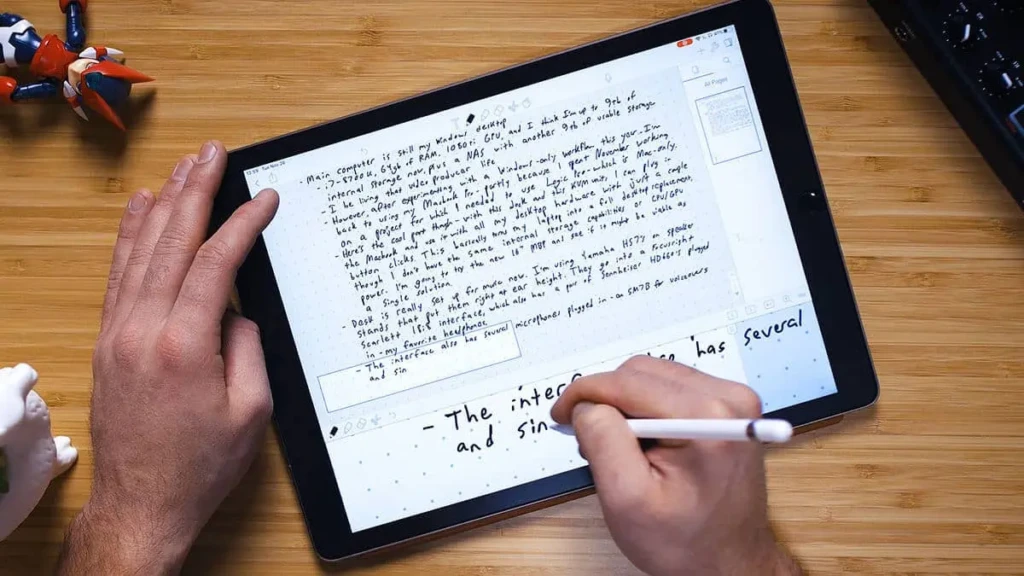 All Pages
- Main computer is still my Windows desktop
- i7-8700K, 64gb of RAM, 1080ti GPU, and I think I'm up to 9tb of
internal storage now, plus a NAS with another 9tb of usable storage
- I be living that video producer life
- However, after experimenting with a Windows-only workflow this year, I'm
back to using my Macbook a lot, partly because I spent November working
on a project for which I needed to use Logic Pro which is Mac-only.
- Here's the cool part though: with this desk and this KVM switch, I can plug in
the Macbook and use it with all my desktop hardware with a couple
button clicks. This basically
though I don't have the same internal storage capabilities or CPU/GPU
power. I'm going to try the new 16" MBP and see if it might be viable as
a single solution
- Desk is really set up for audio now. I'm using Yamaha HS7s on speaker
stands that put them right at ear height. They go into a Focusrite
Scarlett 18i8 interface, which also has a pair of Sennheiser HD660s plugged
in - my favorite headphones
- The interface also has several microphones plugged in - an SM7B for voiceovers
and sin
- The interf has several
and sin